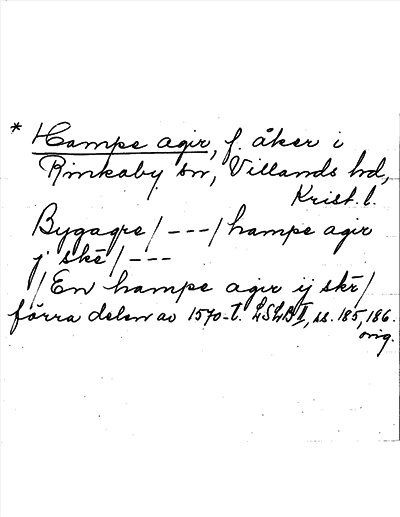 * Hampe agir, f. åker i
Rinkaby sn, Villands hd,
Krist. l.
Bygagre / --- / hampe agir
j skē / ---
/ En hampe agir ij skr /
förra delen av 1570-t. LSLB II, ss. 185, 186.
orig.